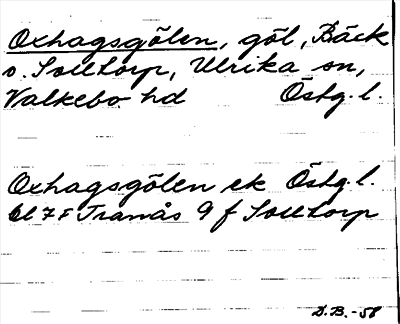 Oxhagsgölen, göl, Bäck
o. Solltorp, Ulrika sn,
Valkebo hd Östg. l.
Oxhagsgölen ek Östg. l.
bl 7 F Tranås 9 f Solltorp
D.B.-58